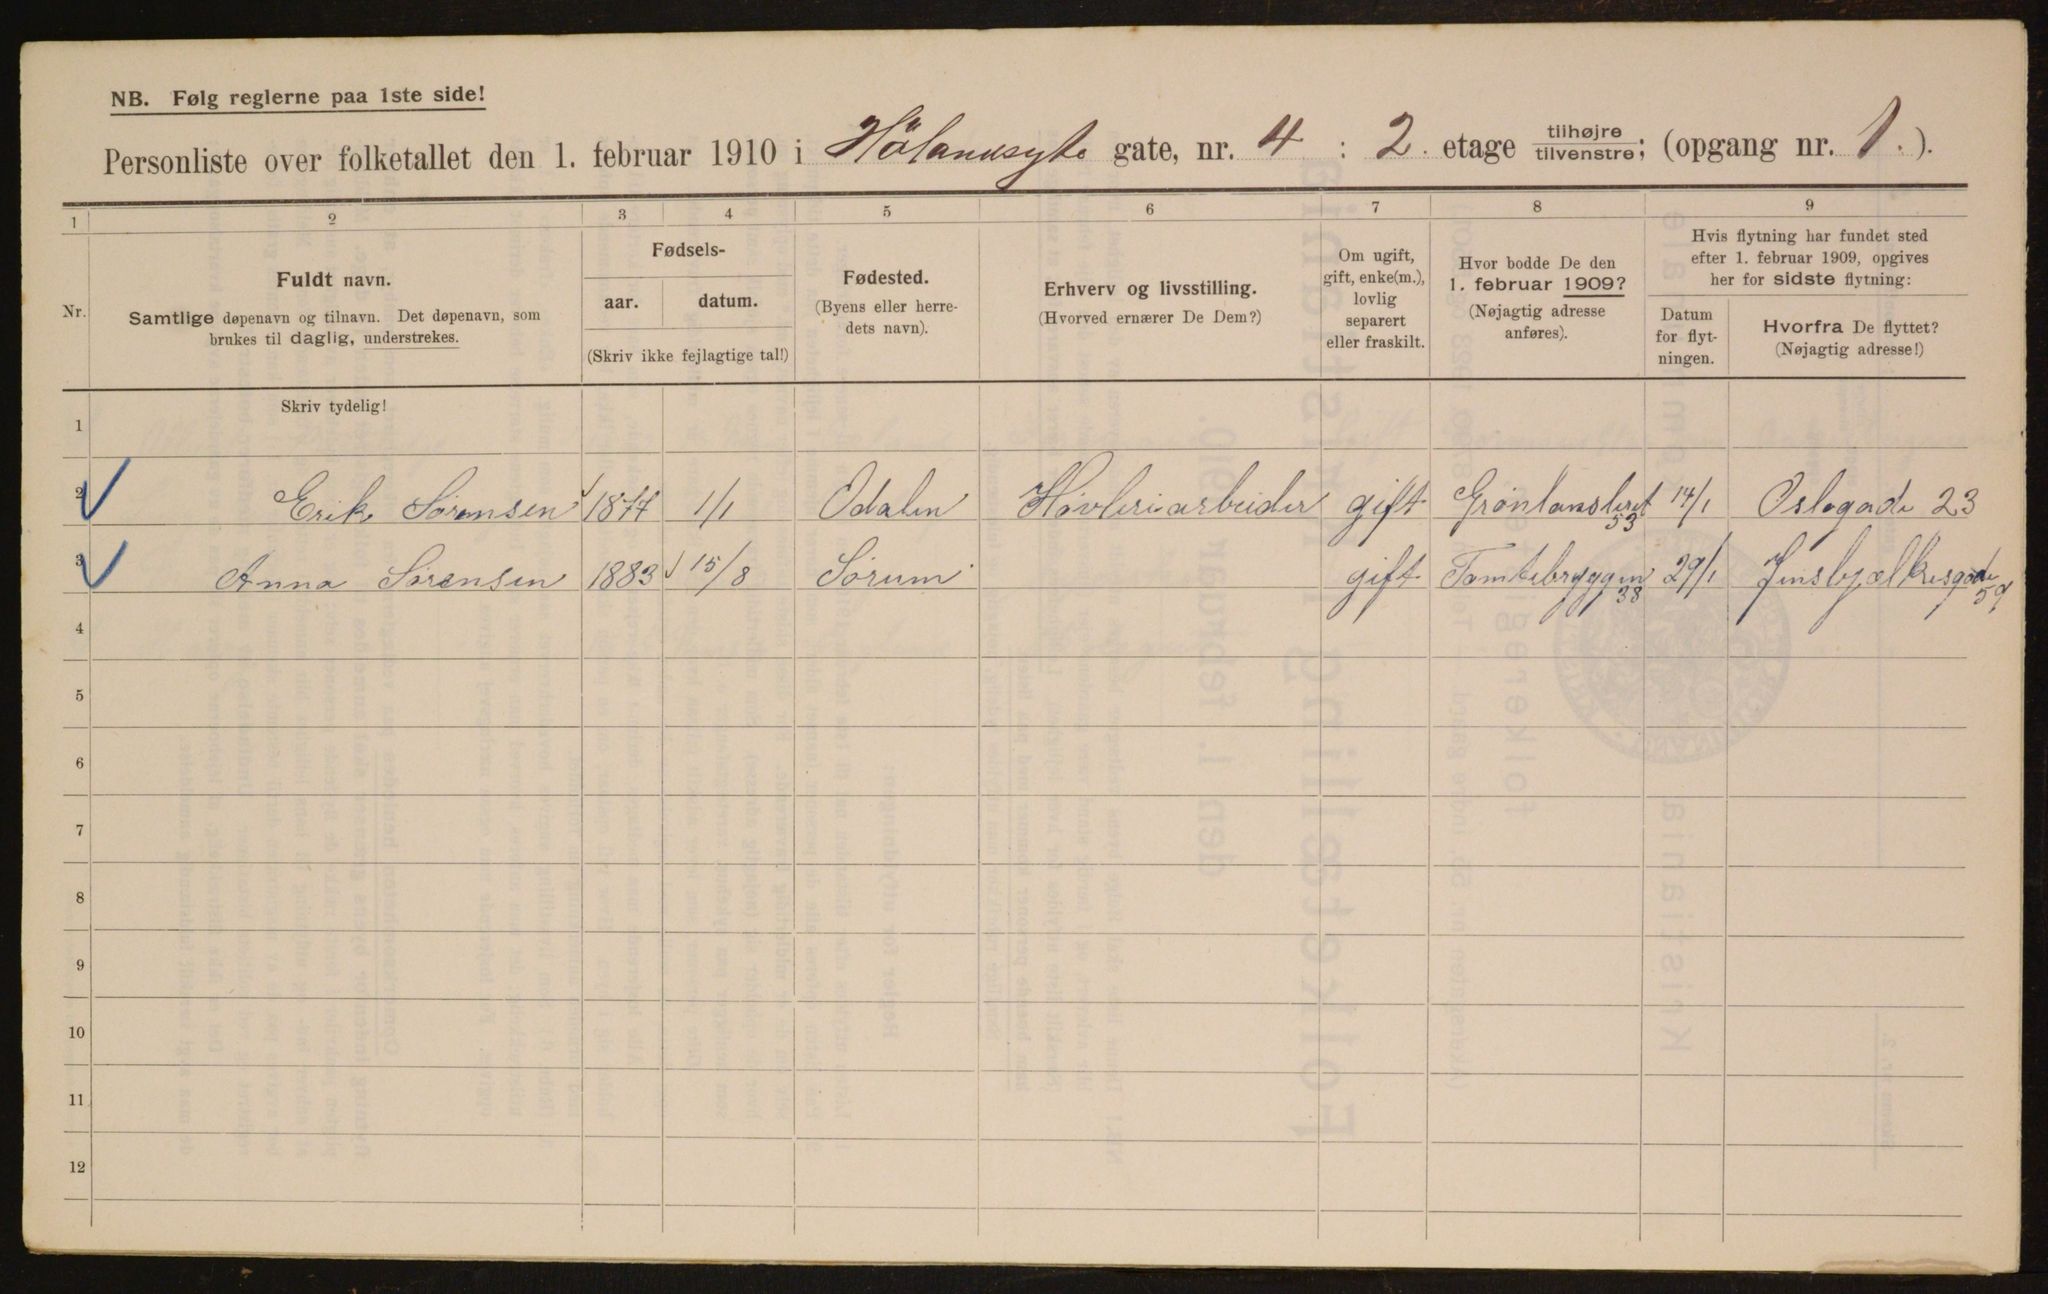 NB. Følg reglerne paa 1ste side!
Personliste over folketallet den 1. februar 1910 i Hölandsgt. gate, nr. 4 : 2. etage tilhøjre/tilvenstre; (opgang nr. 1.).
1 2 3 4 5 6 7 8 9
Nr.
Fuldt navn.
Samtlige døpenavn og tilnavn. Det døpenavn, som
brukes til daglig, understrekes.
Fødsels-
aar. datum.
(Skriv ikke fejlagtige tal!)
Fødested.
(Byens eller herre-
dets navn).
Erhverv og livsstilling.
(Hvorved ernærer De Dem?)
Om ugift,
gift, enke(m.),
lovlig
separert
eller fraskilt.
Hvor bodde De den
1. februar 1909?
(Nøjagtig adresse
anføres).
Hvis flytning har fundet sted
efter 1. februar 1909, opgives
her for sidste flytning:
Datum
for flyt-
ningen.
Hvorfra De flyttet?
(Nøjagtig adresse!)
Skriv tydelig!
1
2 Erik Sørensen 1877 1/1 Odalen Høvleriarbeider gift Grønlansleret 53 14/1 Oslogade 23
3 Anna Sørensen 1883 15/8 Sørum gift Tomtebryggen 38 29/1 Jensbjælkesgade 59
4
5
6
7
8
9
10
11
12